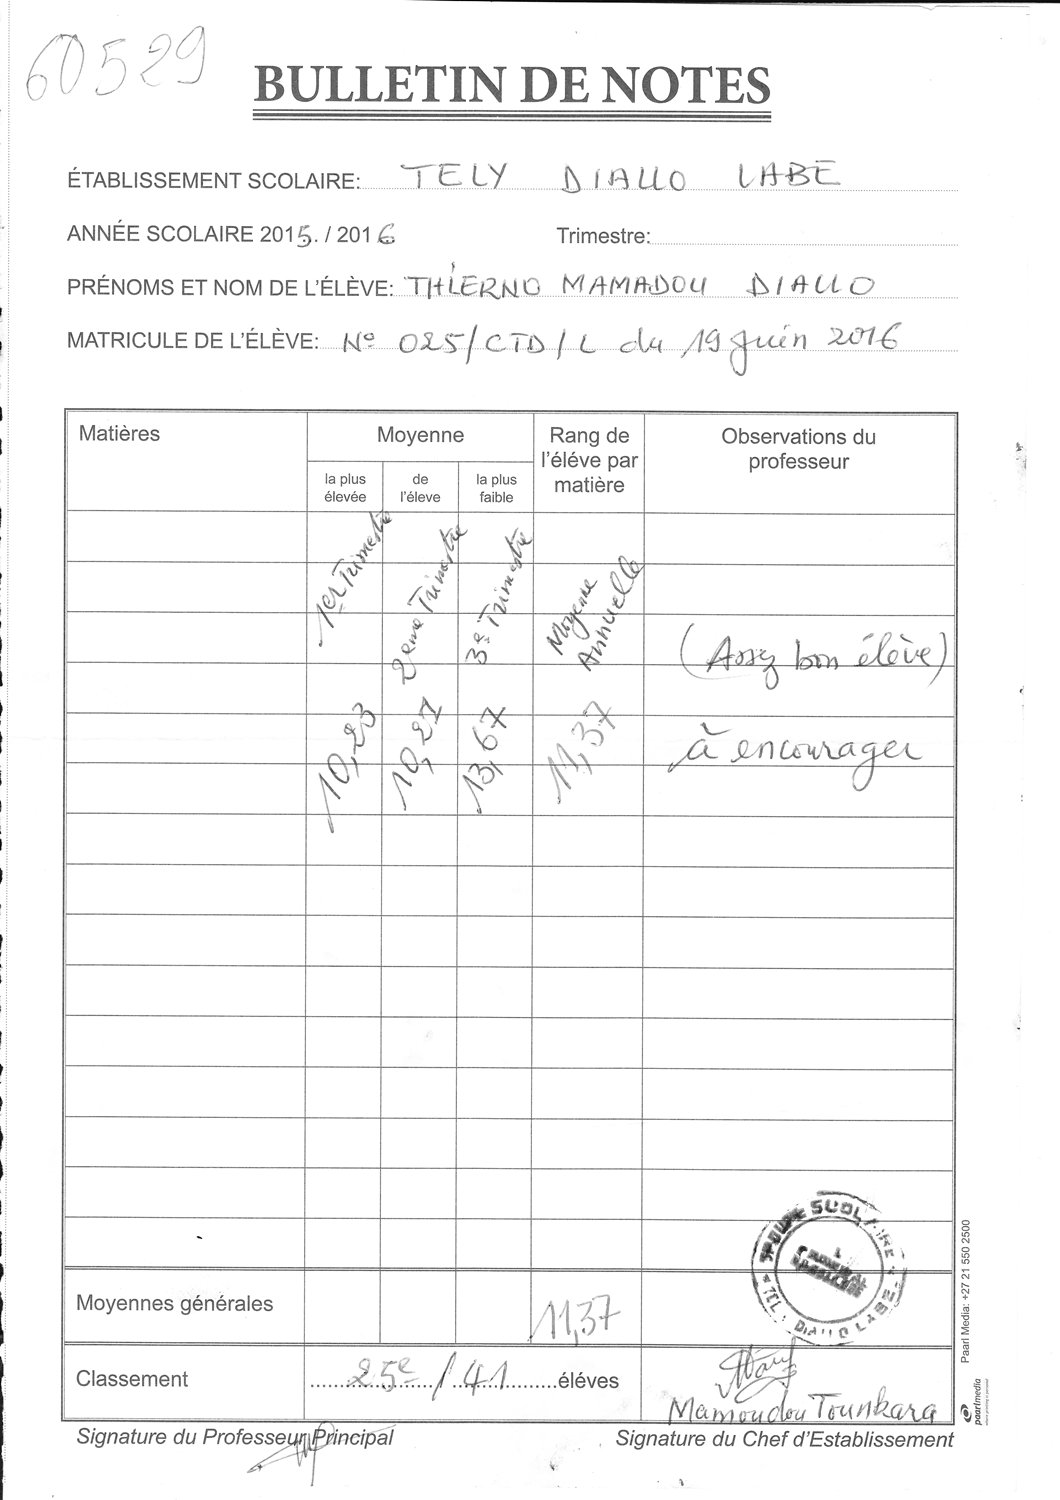 60529
BULLETIN DE NOTES
ÉTABLISSEMENT SCOLAIRE: TELY DIALLO LABE
ANNÉE SCOLAIRE 2015. / 2016 Trimestre:
PRÉNOMS ET NOM DE L'ÉLÈVE: THIERNO MAMADOU DIALLO
MATRICULE DE L'ÉLÈVE: N° 025/CTD/L du 19 juin 2016
Matières Moyenne Rang de l'éléve par matière Observations du professeur
la plus élevée de l'éleve la plus faible
1er Trimestre 2eme Trimestre 3e Trimestre Moyenne Annuelle
(Assez bon élève)
10,23 10,21 13,67 11,37 à encourager
GROUPE SCOLAIRE
TEL: DIALLO LABE
Moyennes générales 11,37
Classement 25e / 41 éléves
Mamoudou Tounkara
Signature du Professeur Principal Signature du Chef d'Etablissement
Paarl Media: +27 21 550 2500
paarlmedia